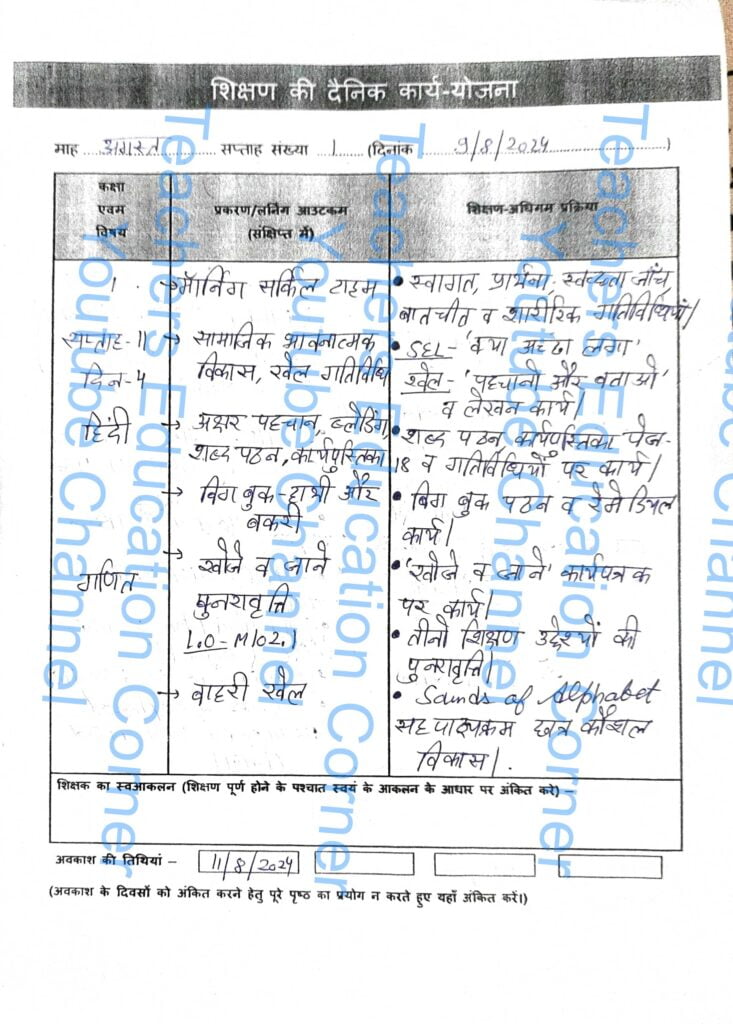 शिक्षण की दैनिक कार्य-योजना
माह ...अगस्त... सप्ताह संख्या ...1... (दिनांक ...9/8/2024...)
कक्षा एवम विषय
प्रकरण/लर्निग आउटकम (संक्षिप्त में)
शिक्षण-अधिगम प्रक्रिया
1
सप्ताह-11
दिन-4
हिंदी
गणित
→ मॉर्निंग सर्किल टाइम
→ सामाजिक भावनात्मक
विकास, खेल गतिविधि
→ अक्षर पहचान, ब्लेडिंग,
शब्द पठन, कार्यपुस्तिका
→ बिग बुक-हाथी और
बकरी
→ खोजे व जाने
पुनरावृत्ति
L.O- M102.1
→ बाहरी खेल
• स्वागत, प्रार्थना, स्वच्छता जाँच
बातचीत व शारीरिक गतिविधियाँ।
• SEL- 'क्या अच्छा लगा'
खेल- 'पहचानो और बताओ'
व लेखन कार्य।
• शब्द पठन, कार्यपुस्तिका पेज-
18 व गतिविधियों पर कार्य।
• बिग बुक पठन व रेमेडियल
कार्य।
• 'खोजे व जाने' कार्यपत्रक
पर कार्य।
• तीनो शिक्षण उद्देश्यों की
पुनरावृत्ति।
• Sounds of Alphabet
सहपाठ्यक्रम कौशल
विकास।
शिक्षक का स्वआकलन (शिक्षण पूर्ण होने के पश्चात स्वयं के आकलन के आधार पर अंकित करे) –
अवकाश की तिथियां – 11/8/2024
(अवकाश के दिवसों को अंकित करने हेतु पूरे पृष्ठ का प्रयोग न करते हुए यहाँ अंकित करें।)
Teachers Education Corner
Youtube Channel
Teachers Education Corner
Youtube Channel
Teachers Education Corner
Youtube Channel